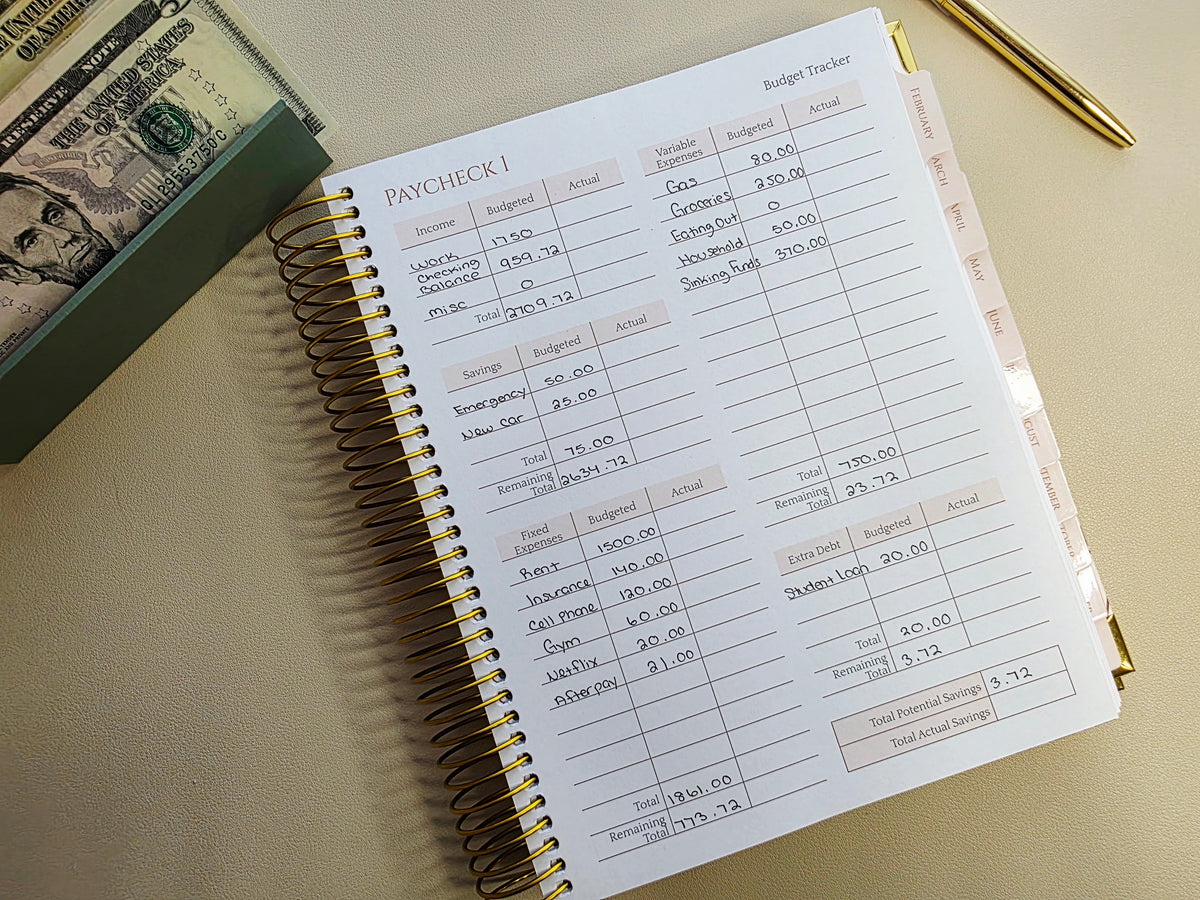 THE UNITED STATES
OF AMERICA
QL29553750C
Budget Tracker
PAYCHECK 1
Income Budgeted Actual
Work 1750
Checking Balance 959.72
misc 0
Total 2709.72
Savings Budgeted Actual
Emergency 50.00
New car 25.00
Total 75.00
Remaining Total 2634.72
Fixed Expenses Budgeted Actual
Rent 1500.00
Insurance 140.00
Cell Phone 120.00
Gym 60.00
Netflix 20.00
Afterpay 21.00
Total 1861.00
Remaining Total 773.72
Variable Expenses Budgeted Actual
Gas 80.00
Groceries 250.00
Eating Out 0
Household 50.00
Sinking Funds 370.00
Total 750.00
Remaining Total 23.72
Extra Debt Budgeted Actual
Student Loan 20.00
Total 20.00
Remaining Total 3.72
Total Potential Savings 3.72
Total Actual Savings
FEBRUARY
ARCH
APRIL
MAY
JUNE
GUST
TEMBER
TOBER